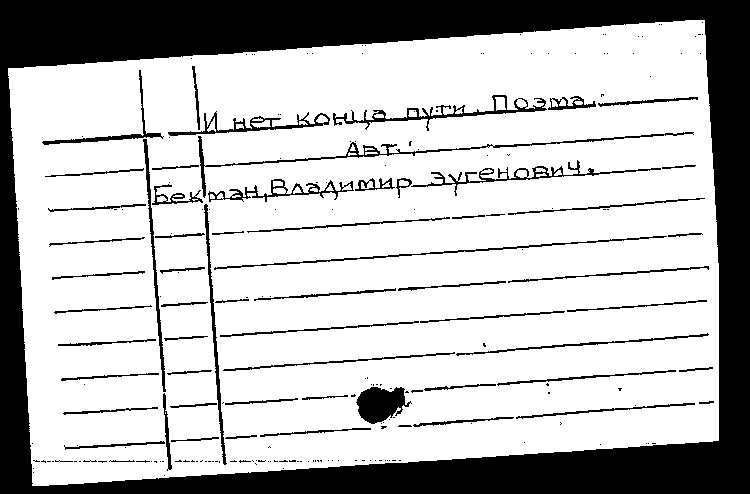 И нет конца пути. Поэма.:
Авт.:
Бекман, Владимир эугенович.